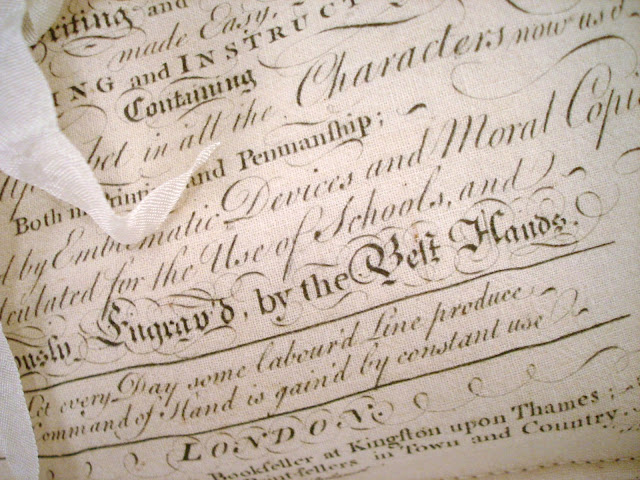 riting and
made Easy,
ING and INSTRUCT
Containing
bet in all the Characters now us'd
Both in Print and Penmanship;
d by Emblematic Devices and Moral Copi
lculated for the Use of Schools, and
ously Engrav'd, by the Beſt Hands.
Let every Day some labour'd Line produce
ommand of Hand is gain'd by constant use
LONDON.
Bookſeller at Kingſton upon Thames;
tſellers in Town and Country.